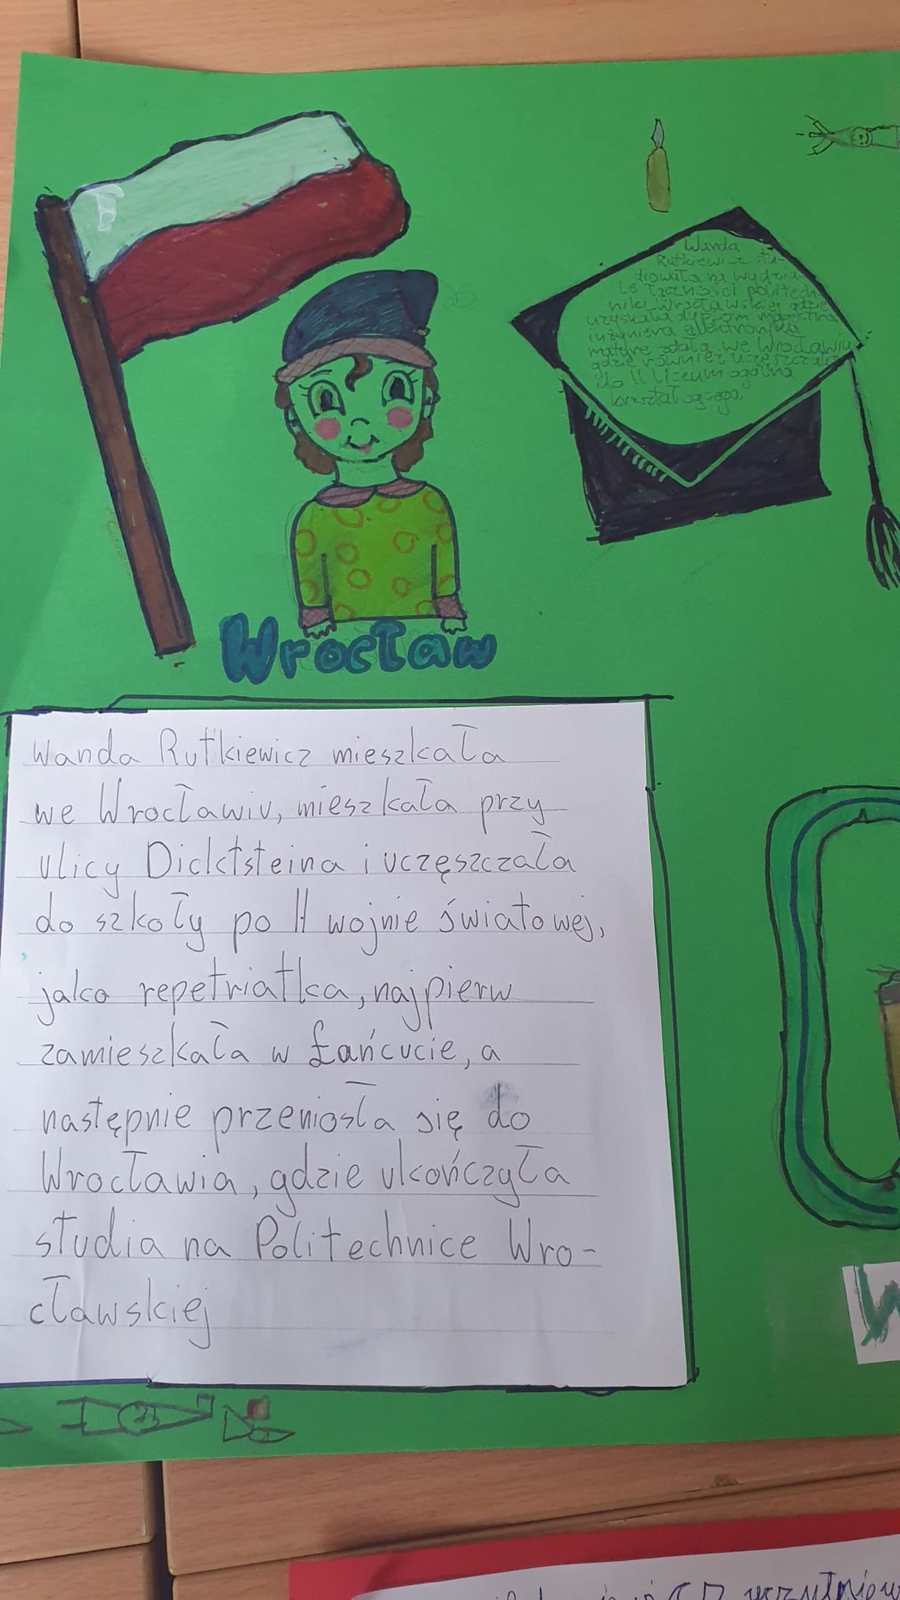 Wanda
Rutkiewicz stu-
diowała na wydzia-
le łączności politech-
niki wrocławskiej gdzie
uzyskała dyplom magistra
inżyniera elektronika
maturę zdała we Wrocławiu
gdzie również uczęszczała
do II liceum ogólno
kształcącego.
Wrocław
Wanda Rutkiewicz mieszkała
we Wrocławiu, mieszkała przy
ulicy Dicktsteina i uczęszczała
do szkoły po II wojnie światowej,
jako repetriatka, najpierw
zamieszkała w Łańcucie, a
następnie przeniosła się do
Wrocławia, gdzie ukończyła
studia na Politechnice Wro-
cławskiej
W